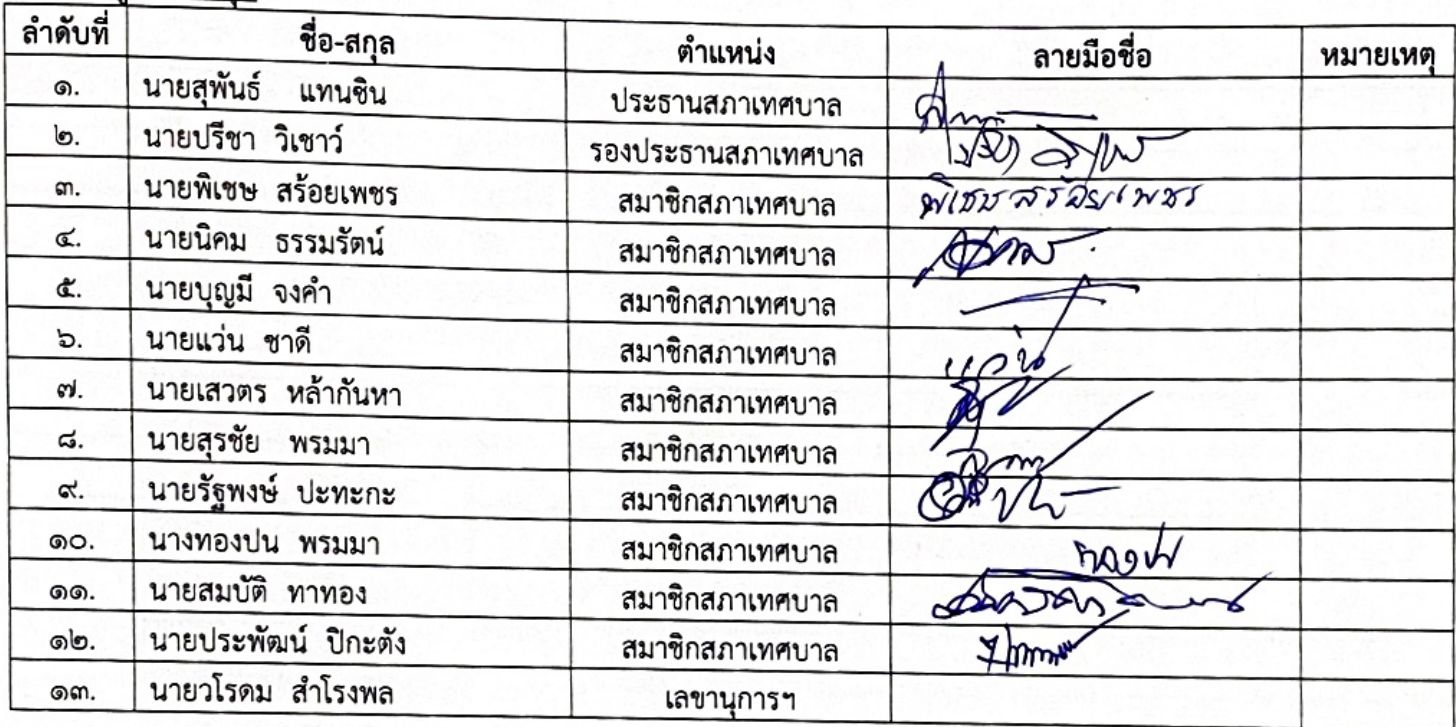 ลำดับที่ ชื่อ-สกุล ตำแหน่ง ลายมือชื่อ หมายเหตุ
๑. นายสุพันธ์ แทนชิน ประธานสภาเทศบาล
๒. นายปรีชา วิเชาว์ รองประธานสภาเทศบาล
๓. นายพิเชษ สร้อยเพชร สมาชิกสภาเทศบาล พิเชษ สร้อยเพชร
๔. นายนิคม ธรรมรัตน์ สมาชิกสภาเทศบาล
๕. นายบุญมี จงคำ สมาชิกสภาเทศบาล
๖. นายแว่น ชาดี สมาชิกสภาเทศบาล แว่น
๗. นายเสวตร หล้ากันหา สมาชิกสภาเทศบาล
๘. นายสุรชัย พรมมา สมาชิกสภาเทศบาล
๙. นายรัฐพงษ์ ปะทะกะ สมาชิกสภาเทศบาล
๑๐. นางทองปน พรมมา สมาชิกสภาเทศบาล ทองปน
๑๑. นายสมบัติ ทาทอง สมาชิกสภาเทศบาล
๑๒. นายประพัฒน์ ปิกะตัง สมาชิกสภาเทศบาล
๑๓. นายวโรดม สำโรงพล เลขานุการฯ